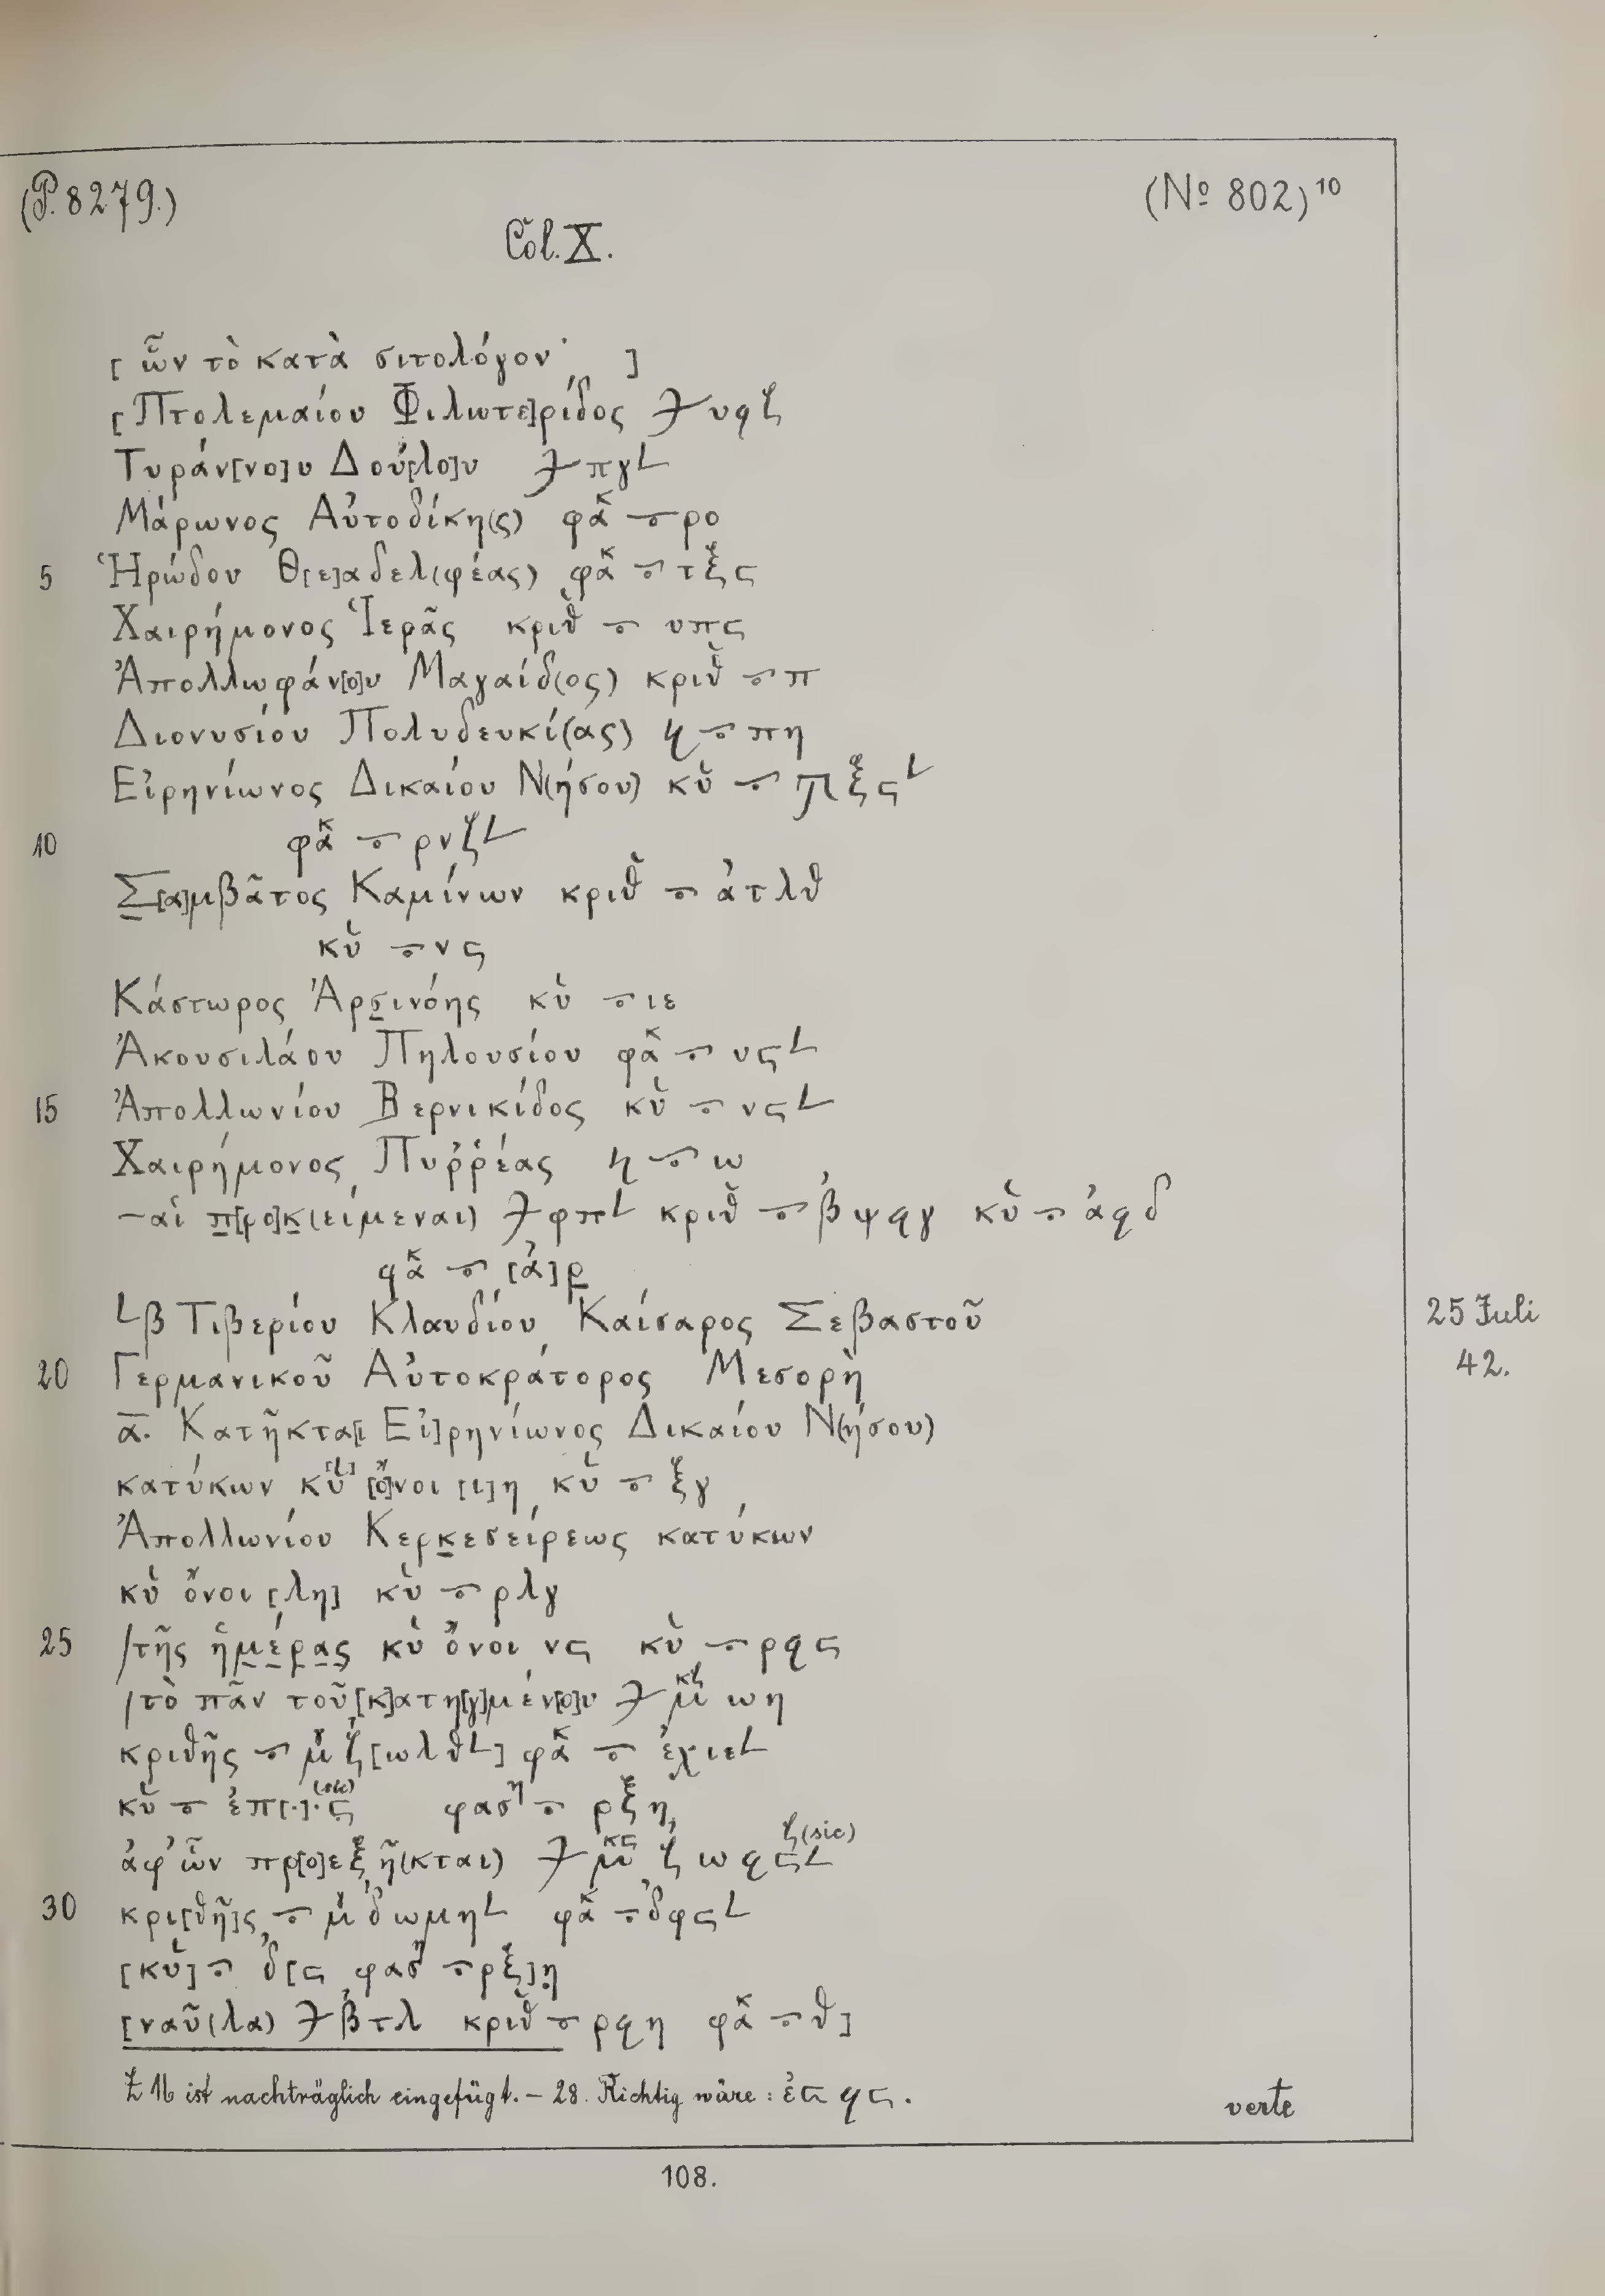 (P. 8279.)
(No 802)10
Col. X.
[ὧν τὸ κατὰ σιτολόγον· ]
[Πτολεμαίου Φιλωτε]ρίδος υϙζ
Τυράν[νο]υ Δού[λο]υ πγL
Μάρωνος Αὐτοδίκη(ς) φακ ρο
5 Ἡρώδου Θ[ε]αδελ(φέας) φακ τξϛ
Χαιρήμονος Ἱερᾶς κριθ υπϛ
Ἀπολλωφάν[ο]υ Μαγαίδ(ος) κριθ π
Διονυσίου Πολυδευκί(ας) πη
Εἰρηνίωνος Δικαίου Ν(ήσου) κυ ϡξϛL
10 φακ ρνζL
Σ[α]μβᾶτος Καμίνων κριθ ἀτλθ
κυ νϛ
Κάστωρος Ἀρσινόης κυ ιε
Ἀκουσιλάου Πηλουσίου φακ υϛL
15 Ἀπολλωνίου Βερνικίδος κυ νϛL
Χαιρήμονος Πυῤῥέας ω
—αἱ π[ρο]κ(είμεναι) φπL κριθ βψϙγ κυ ἀϙδ
φακ [ἀ]ρ
Lβ Τιβερίου Κλαυδίου Καίσαρος Σεβαστοῦ
25 Juli
42.
20 Γερμανικοῦ Αὐτοκράτορος Μεσορὴ
α. Κατῆκτα[ι Εἰ]ρηνίωνος Δικαίου Ν(ήσου)
κατύκων κυ [ὄ]νοι [ι]η κυ ξγ
Ἀπολλωνίου Κερκεσείρεως κατύκων
κυ ὄνοι [λη] κυ ρλγ
25 /τῆς ἡμέρας κυ ὄνοι νϛ κυ ρϙϛ
/τὸ πᾶν τοῦ [κ]ατη[γ]μέν[ο]υ μκζ ωη
κριθῆς μ ζ[ωλθL] φακ ἐχιεL
κυ ἐπ[.].ϛ(sic) φαση ρξη
ἀφ' ὧν πρ[ο]εξῆ(κται) μκϛ ζωϙϛζ(sic)L
30 κρι[θῆ]ς μ δωμηL φακ δφϛL
[κυ] δ[ϛ φαση ρξ]η
[ναῦ(λα) βτλ κριθ ρϙη φακ θ]
Z 16 ist nachträglich eingefügt. — 28. Richtig wäre: ἐϡϙϛ.
verte
108.